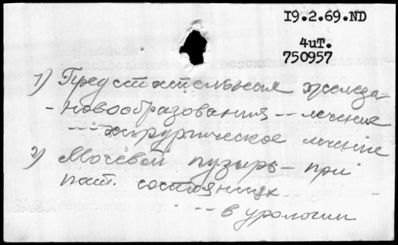 19.2.69.ND
4uT.
750957
1) Предстательная железа
- новообразования -- лечение
-- хирургическое лечение
2) Мочевой пузырь - при
пат. состояниях
-- в урологии